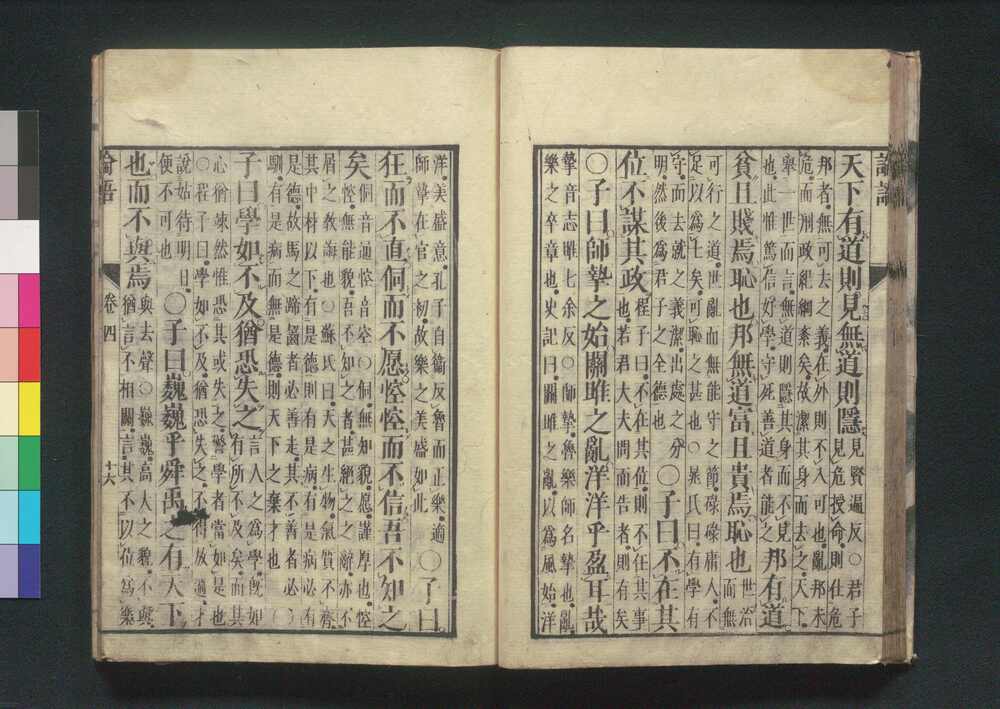 論語
天下有道則見無道則隱
見賢遍反○君子
見危授命則仕危
邦者無可去之義在外則不入可也亂邦未
危而刑政紀綱紊矣故潔其身而去之天下
舉一世而言無道則隱其身而不見
也此惟篤信好學守死善道者能之
邦有道
貧且賤焉恥也邦無道富且貴焉恥也
世治
而無
可行之道世亂而無能守之節碌碌庸人不
足以為士矣可恥之甚也○晁氏曰有學有
守而去就之義潔出處之分
明然後為君子之全德也
○子曰不在其
位不謀其政
程子曰不在其位則不任其事
也若君大夫問而告者則有矣
○子曰師摯之始關雎之亂洋洋乎盈耳哉
摯音志雎七余反○師摯魯樂師名摯也亂
樂之卒章也史記曰關雎之亂以為風始洋
洋美盛意孔子自衛反魯而正樂適
師摯在官之初故樂之美盛如此
○子曰
狂而不直侗而不愿悾悾而不信吾不知之
矣
侗音通悾音空○侗無知貌愿謹厚也悾
悾無能貌吾不知之者甚絕之之辭亦不
屑之教誨也○蘇氏曰天之生物氣質不齊
其中材以下有是德則有是病有是病必有
是德故馬之蹄齧者必善走其不善者必
馴有是病而無是德則天下之棄才也
子曰學如不及猶恐失之
言人之為學既如
有所不及矣而其
心猶竦然惟恐其或失之警學者當如是也
○程子曰學如不及猶恐失之不得放過才
說姑待明日
便不可也
○子曰巍巍乎舜禹之有天下
也而不與焉
與去聲○巍巍高大之貌不與
猶言不相關言其不以位為樂
論語
卷四
十六